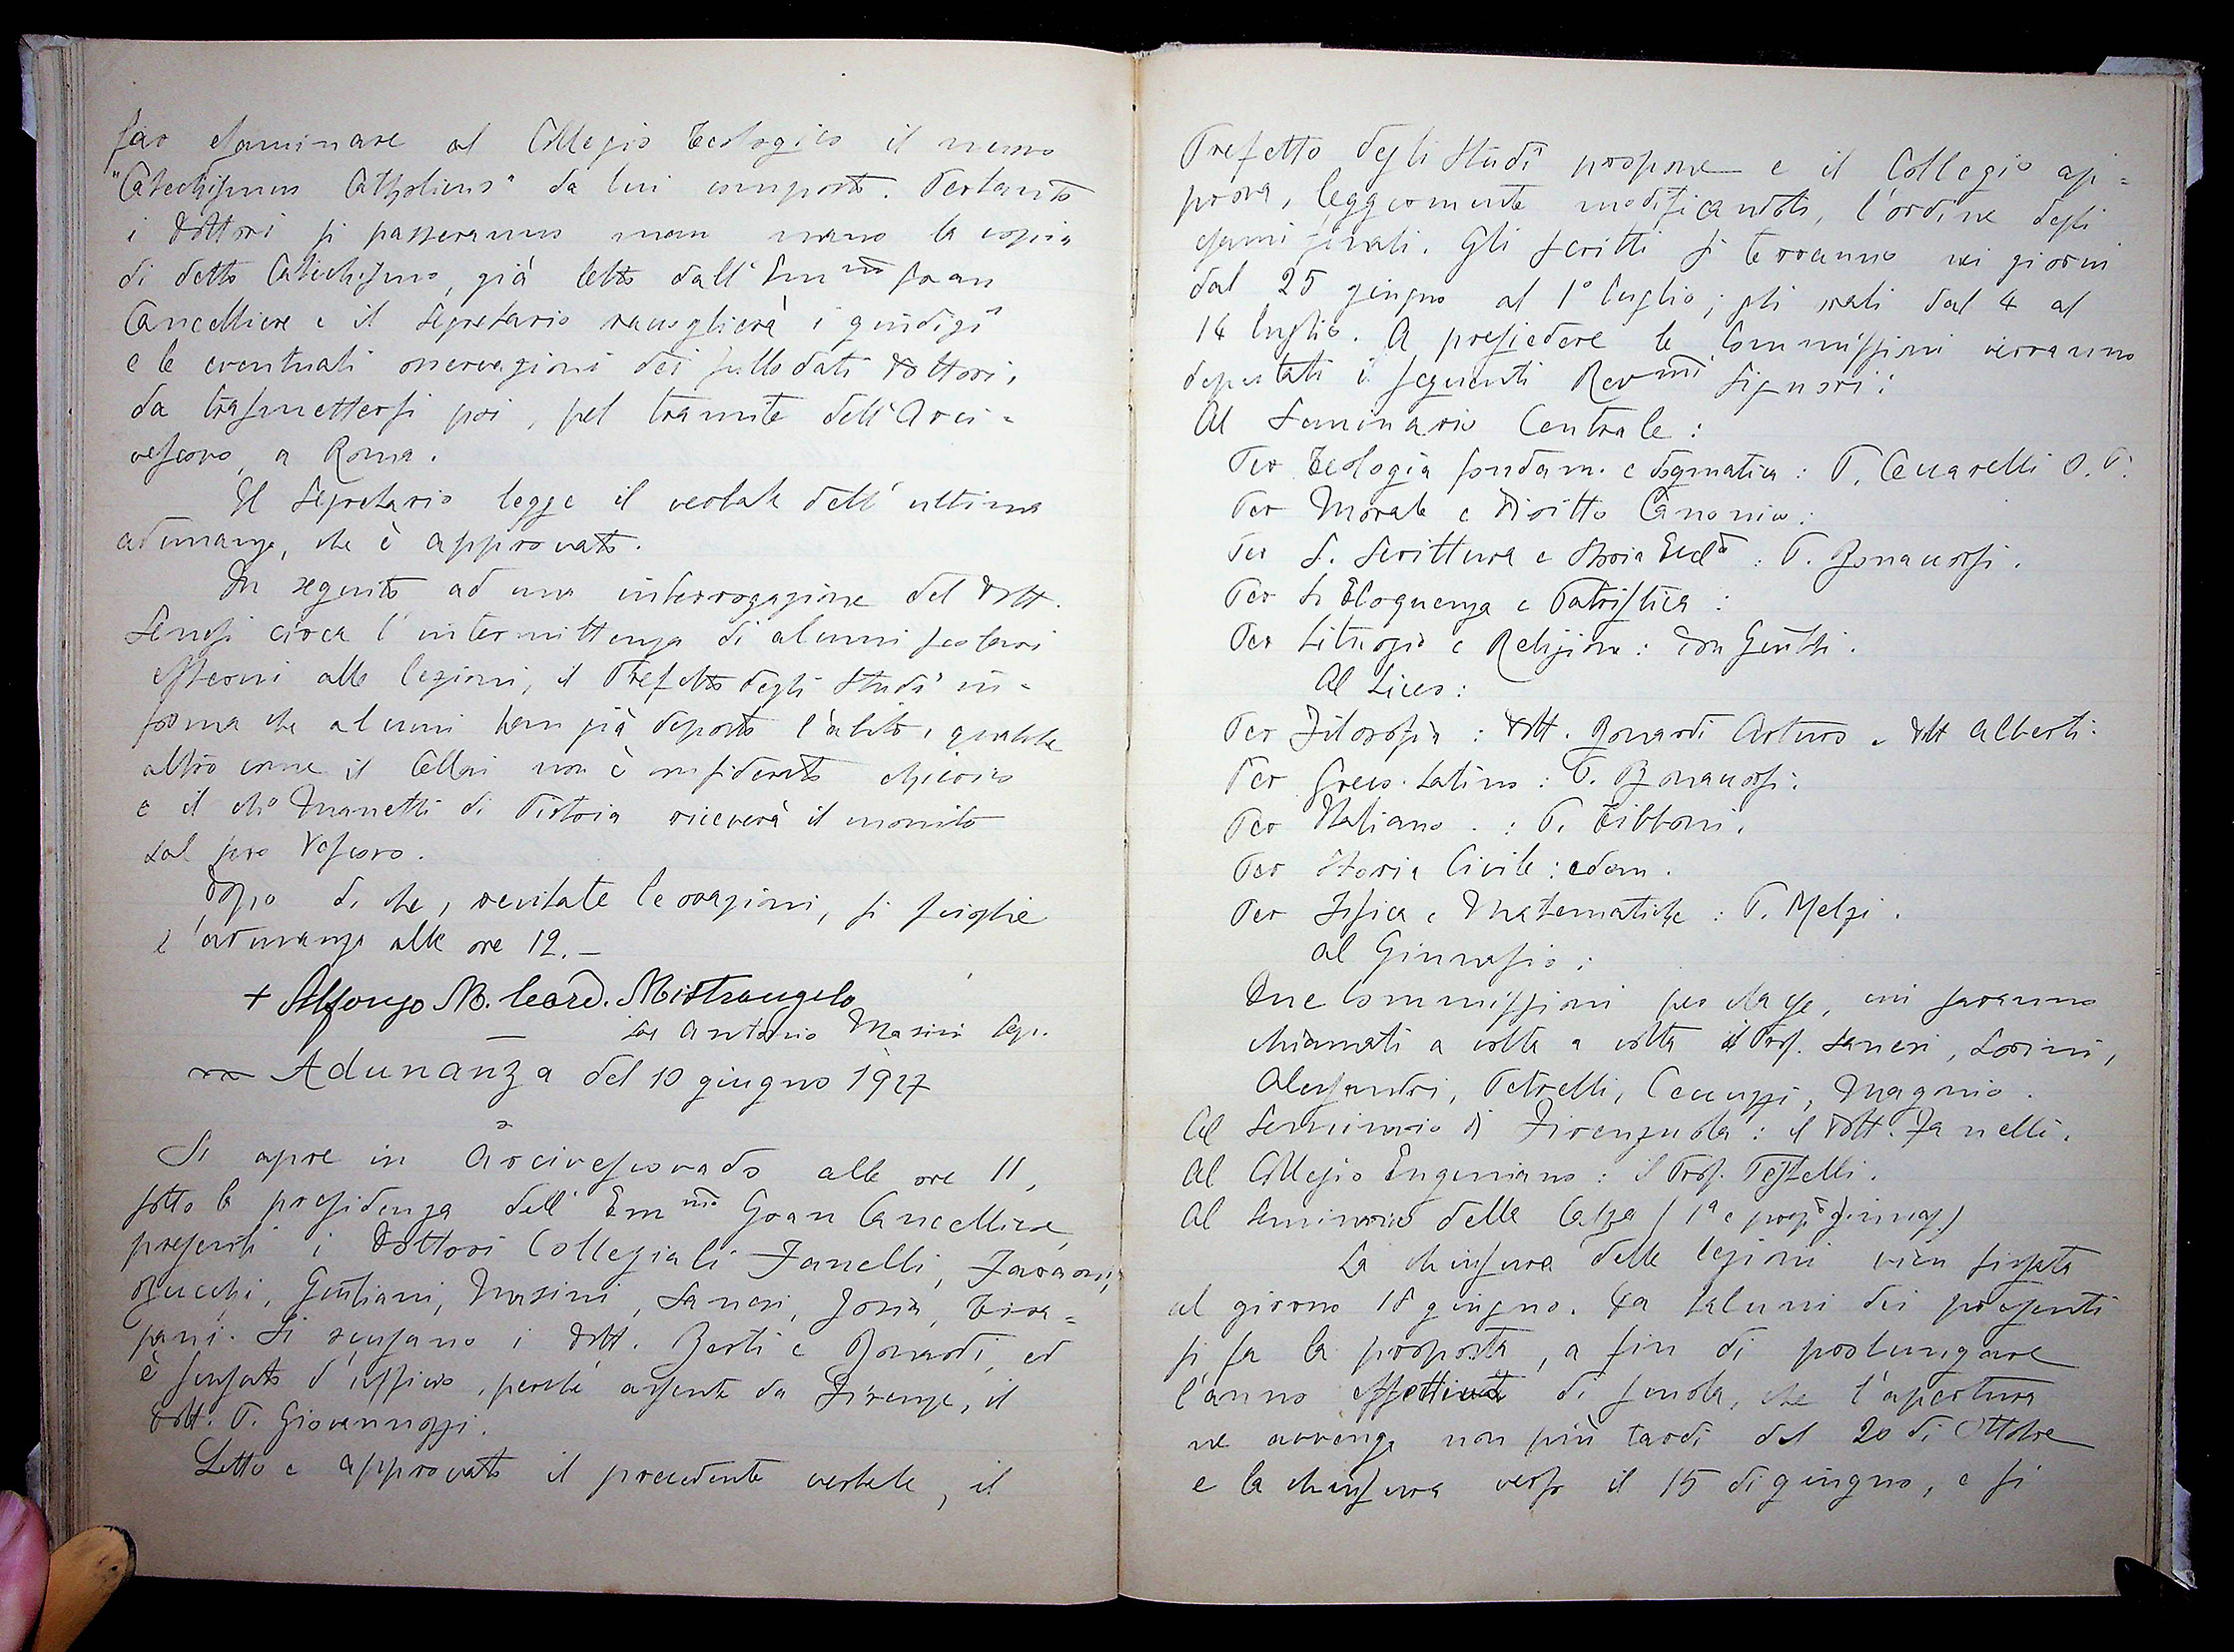 far esaminare al Collegio Teologico il nuovo
"Catechismus Catholicus" da lui composto. Pertanto
i Dottori si passeranno man mano la copia
di detto Catechismo, già letto dall'Em.mo Gran
Cancelliere e il Segretario raccoglierà i giudizî
e le eventuali osservazioni dei sullodati Dottori,
da trasmettersi poi, pel tramite dell'Arci=
vescovo, a Roma.
Il Segretario legge il verbale dell'ultima
adunanza, che è approvato.
In seguito ad una interrogazione del Dott.
Senesi circa l'intermittenza di alunni scolari
esterni alle lezioni, il Prefetto degli Studî in=
forma che alcuni han già deposto l'abito, qualche
altro come il Cellai non è considerato chierico
e il ch.o Manetti di Pistoia riceverà il monito
dal suo Vescovo.
Dopo di che, recitate le orazioni, si scioglie
l'adunanza alle ore 12. –
+ Alfonso M. Card. Mistrangelo
Sac Antonio Masini Seg.
Adunanza del 10 giugno 1927
Si apre in Arcivescovado alle ore 11,
sotto la presidenza dell'Em.mo Gran Cancelliere,
presenti i Dottori Collegiali Fanelli, Faraoni,
Bucchi, Giuliani, Masini, Saneri, Joria, Tira=
pani. Si scusano i Dott. Berti e Bonardi, ed
è scusato d'ufficio, perché assente da Firenze, il
Dott. P. Giovannozzi.
Letto e approvato il precedente verbale, il
Prefetto degli Studî propone e il Collegio ap=
prova, leggermente modificandolo, l'ordine degli
esami finali. Gli scritti si terranno nei giorni
dal 25 giugno al 1° luglio; gli orali dal 4 al
14 luglio. A presiedere le Commissioni verranno
deputati i seguenti Rev.mi Signori:
Al Seminario Centrale:
Per Teologia fondam. e dogmatica: P. Ceccarelli O.P.
Per Morale e Diritto Canonico:
Per S. Scrittura e Storia Eccl.a: P. Bonaccorsi.
Per S. Eloquenza e Patristica:
Per Liturgia e Religione: Don Giusti.
Al Liceo:
Per Filosofia: Dott. Bonardi Arturo e Dott Alberti.
Per Greco-Latino: P. Bonaccorsi.
Per Italiano: P. Tibboni.
Per Storia Civile: idem.
Per Fisica e Matematiche: P. Melzi.
Al Ginnasio:
Due Commissioni per classe, cui saranno
chiamati a volta a volta i Prof. Saneri, Lorini,
Alessandri, Petrelli, Cecuzzi, Magnio.
Al Seminario di Firenzuola: il Dott. Fanelli.
Al Collegio Eugeniano: il Prof. Testelli.
Al Seminario della Calza (1ª e propª ginnas.)
La chiusura delle lezioni vien fissata
al giorno 18 giugno. Da taluni dei presenti
si fa la proposta, a fin di prolungare
l'anno effettivo di scuola, che l'apertura
ne avvenga non più tardi del 20 di Ottobre
e la chiusura verso il 15 di giugno, e si